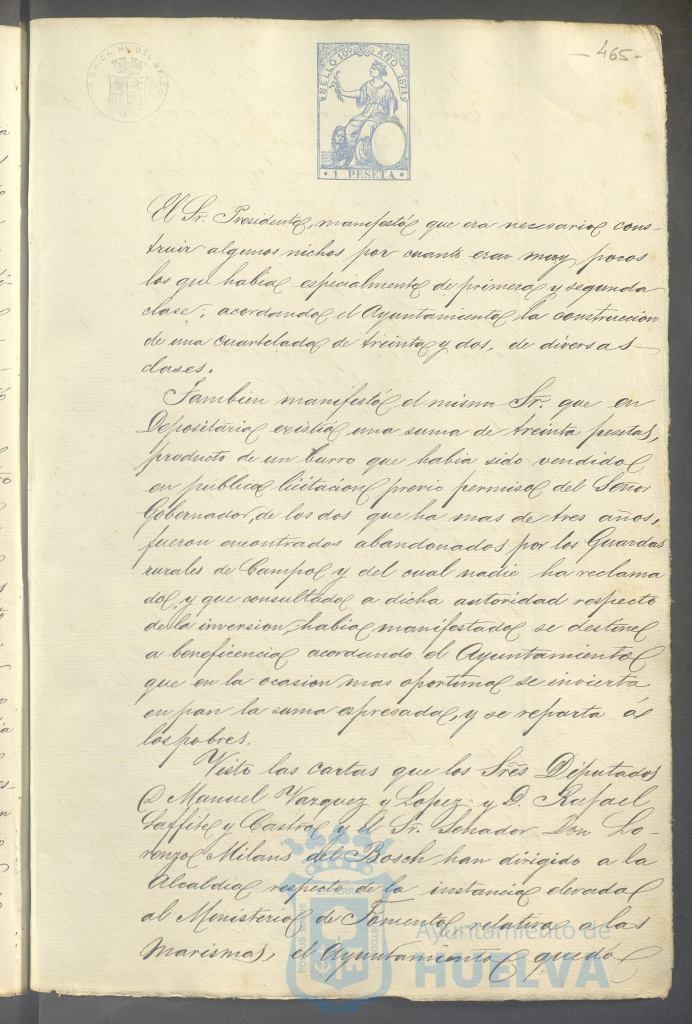 FABRICA NL DEL SELLO
SELLO 10º AÑO 1871
1 PESETA
- 465 -
El Sr. Presidente, manifestó que era necesario cons-
truir algunos nichos por cuanto eran muy pocos
los que habia especialmente de primera y segunda
clase; acordando el Ayuntamiento la construccion
de una cuartelada de treinta y dos, de diversas
clases.
Tambien manifestó el mismo Sr. que en
Depositaria existia una suma de treinta pesetas,
producto de un burro que habia sido vendido
en publica licitacion previo permiso del Señor
Gobernador, de los dos que ha mas de tres años,
fueron encontrados abandonados por los Guardas
rurales de Campo y del cual nadie ha reclama
do, y que consultado a dicha autoridad respecto
de la inversion, habia manifestado se destine
a beneficencia acordando el Ayuntamiento
que en la ocasion mas oportuna se invierta
en pan la suma espresada, y se reparta á
los pobres.
Visto las cartas que los Sres Diputados
D Manuel Vazquez y Lopez y D. Rafael
Laffite y Castro y el Sr. Senador Don Lo-
renzo Milans del Bosch han dirigido a la
Alcaldia respecto de la instancia elevada
al Ministerio de Fomento relativa a las
marismas, el Ayuntamiento quedó
Ayuntamiento de
HUELVA